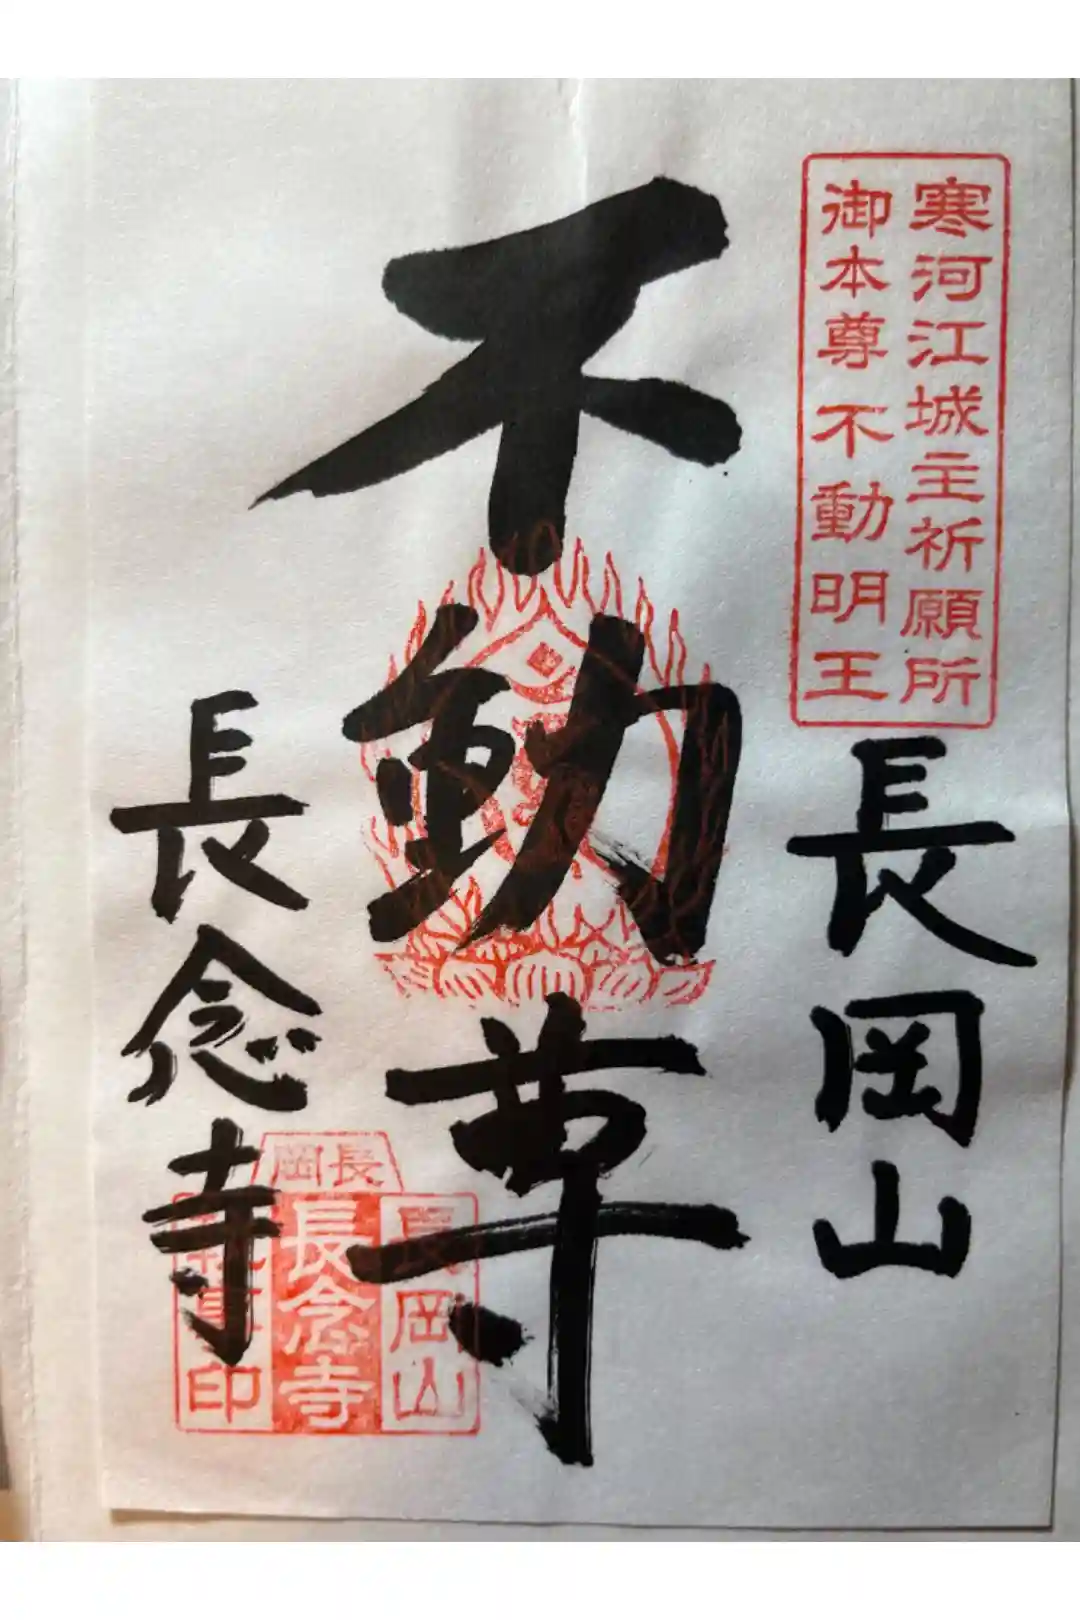 寒河江城主祈願所
御本尊 不動明王
長岡山
不動尊
長念寺
長岡
長岡山
長念寺
印